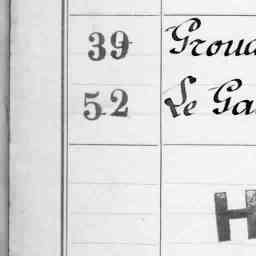 39 Groua
52 Le Ga
H